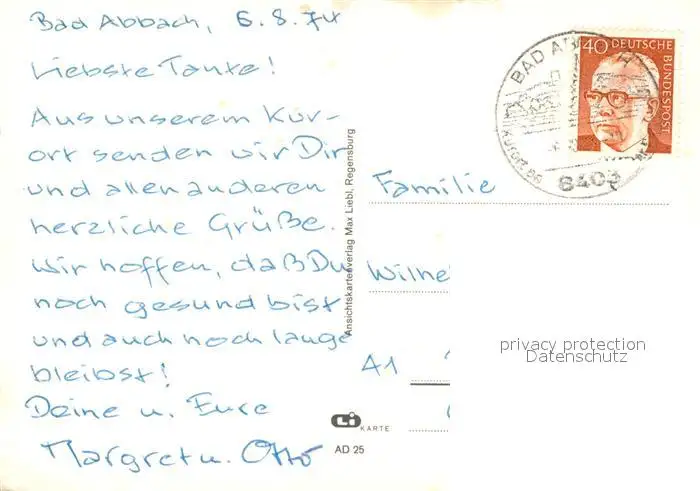 Bad Abbach, 6.8.74
Liebste Tante!
Aus unserem Kur-
ort senden wir Dir
und allen anderen
herzliche Grüße.
Wir hoffen, daß Du
noch gesund bist
und auch noch lange
bleibst!
Deine u. Eure
Margret u. Otto
Ansichtskartenverlag Max Liebl, Regensburg
Li KARTE
AD 25
BAD AB
8403
40 DEUTSCHE
BUNDESPOST
Familie
Wilhe
A1
privacy protection
Datenschutz